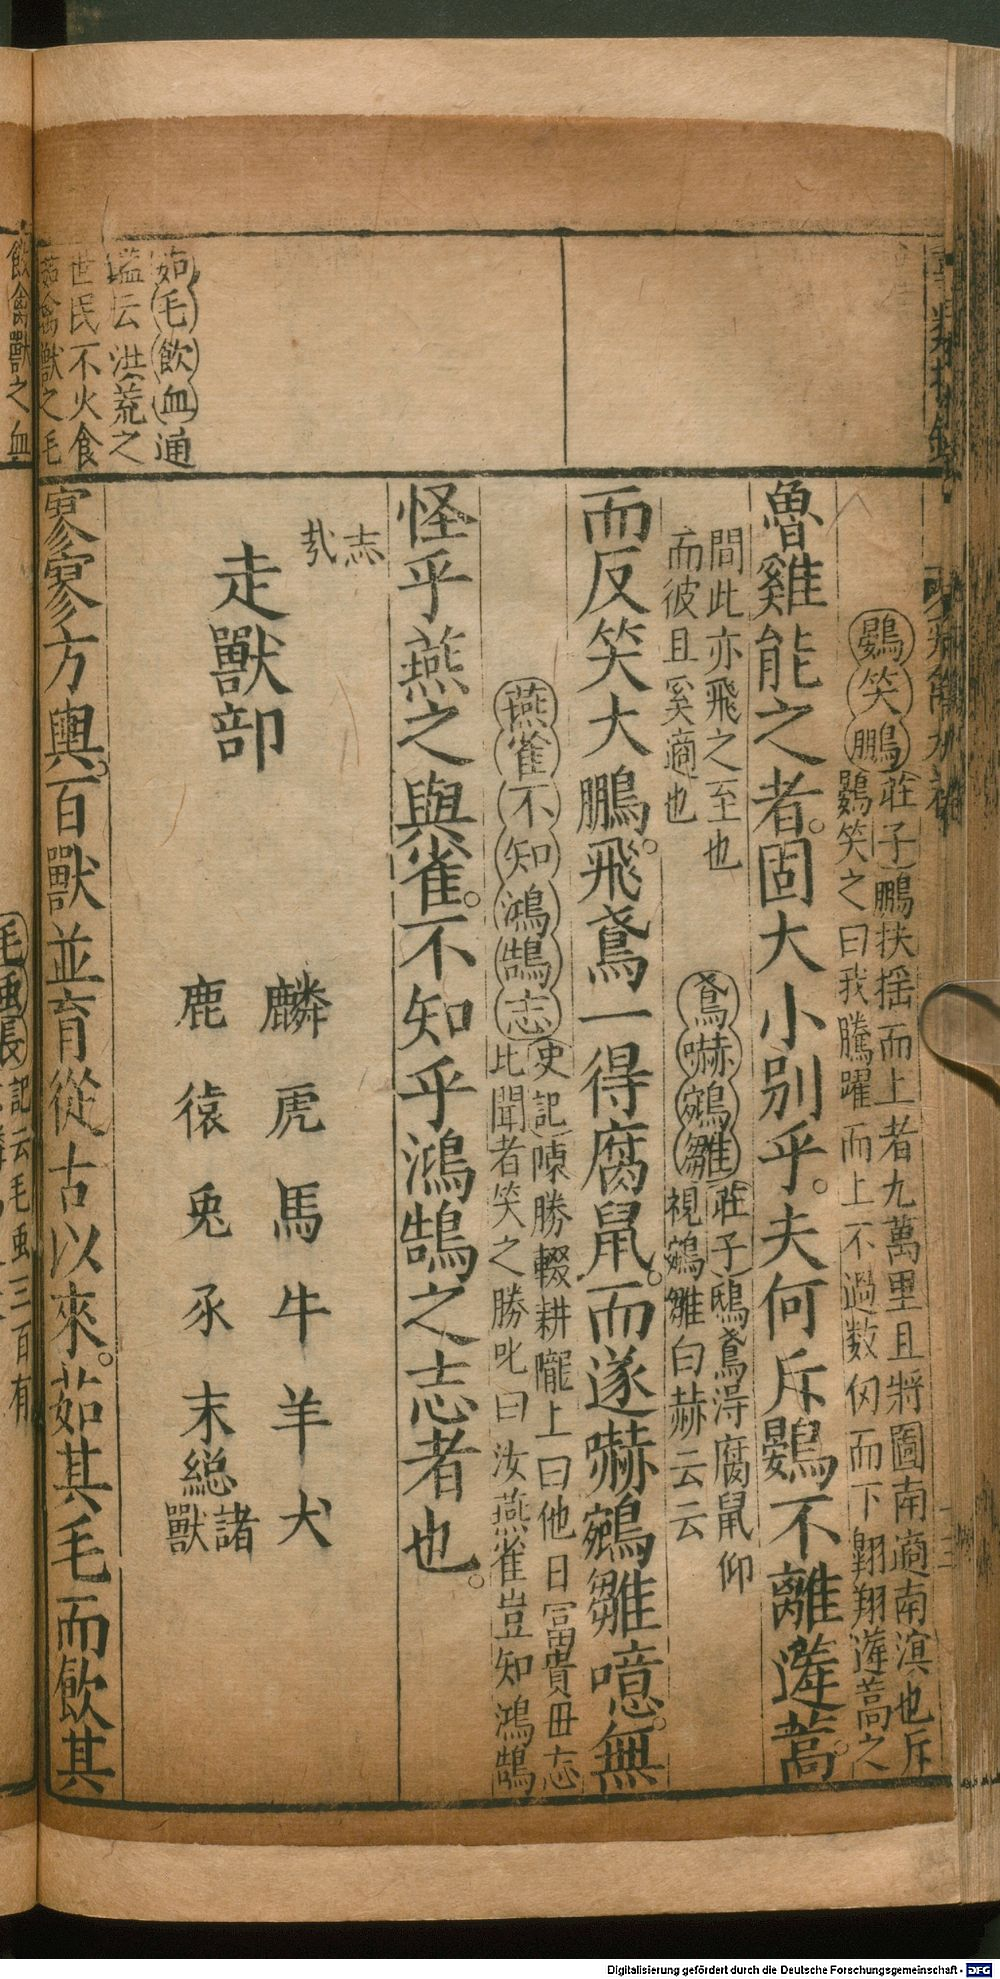 鷃笑鵬莊子鵬扶揺而上者九萬里且將圖南適南溟也斥
鷃笑之曰我騰躍而上不過数仞而下翺翔蓬蒿之
魯雞能之者。固大小别乎。夫何斥鷃不離蓬蒿。
間此亦飛之至也
而彼且奚適也
鳶嚇鵷雛莊子鴟鳶淂腐鼠仰
視鵷雛曰赫云云
而反笑大鵬。飛鳶一得腐鼠。而遂嚇鵷雛噫。無
燕雀不知鴻鵠志史記陳勝輟耕隴上曰他日富貴毋忘
比聞者笑之勝叱曰汝燕雀豈知鴻鵠
怪乎燕之與雀。不知乎鴻鵠之志者也。
志
㢤
走獸部
麟 虎 馬 牛 羊 犬
鹿 猿 兎 豕 末総諸獸
茹毛飲血通
鑑云洪荒之
世民不火食
茹禽獸之毛
寥寥方輿。百獸並育從古以來。茹其毛而飲其
飲禽獸之血
記云毛虫三百有
Digitalisierung gefördert durch die Deutsche Forschungsgemeinschaft - DFG